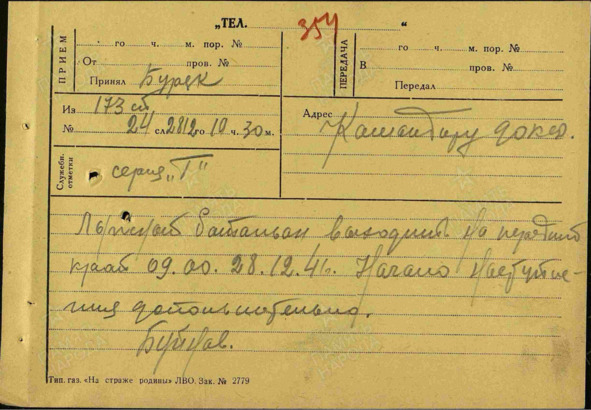 „ТЕЛ. “
354
ПРИЕМ
го ч. м. пор. №
От пров. №
Принял Бурак
ПЕРЕДАЧА
го ч. м. пор. №
В пров. №
Передал
Из 173 сб
№ 24 сл. 28 12го 10 ч. 30 м.
Адрес Командиру
Служебн. отметки
серия „Г“
Лыжный батальон выходит на передний
край 09.00. 28.12.41. Начало наступле-
ния дополнительно.
Тип. газ. «На страже родины» ЛВО. Зак. № 2779